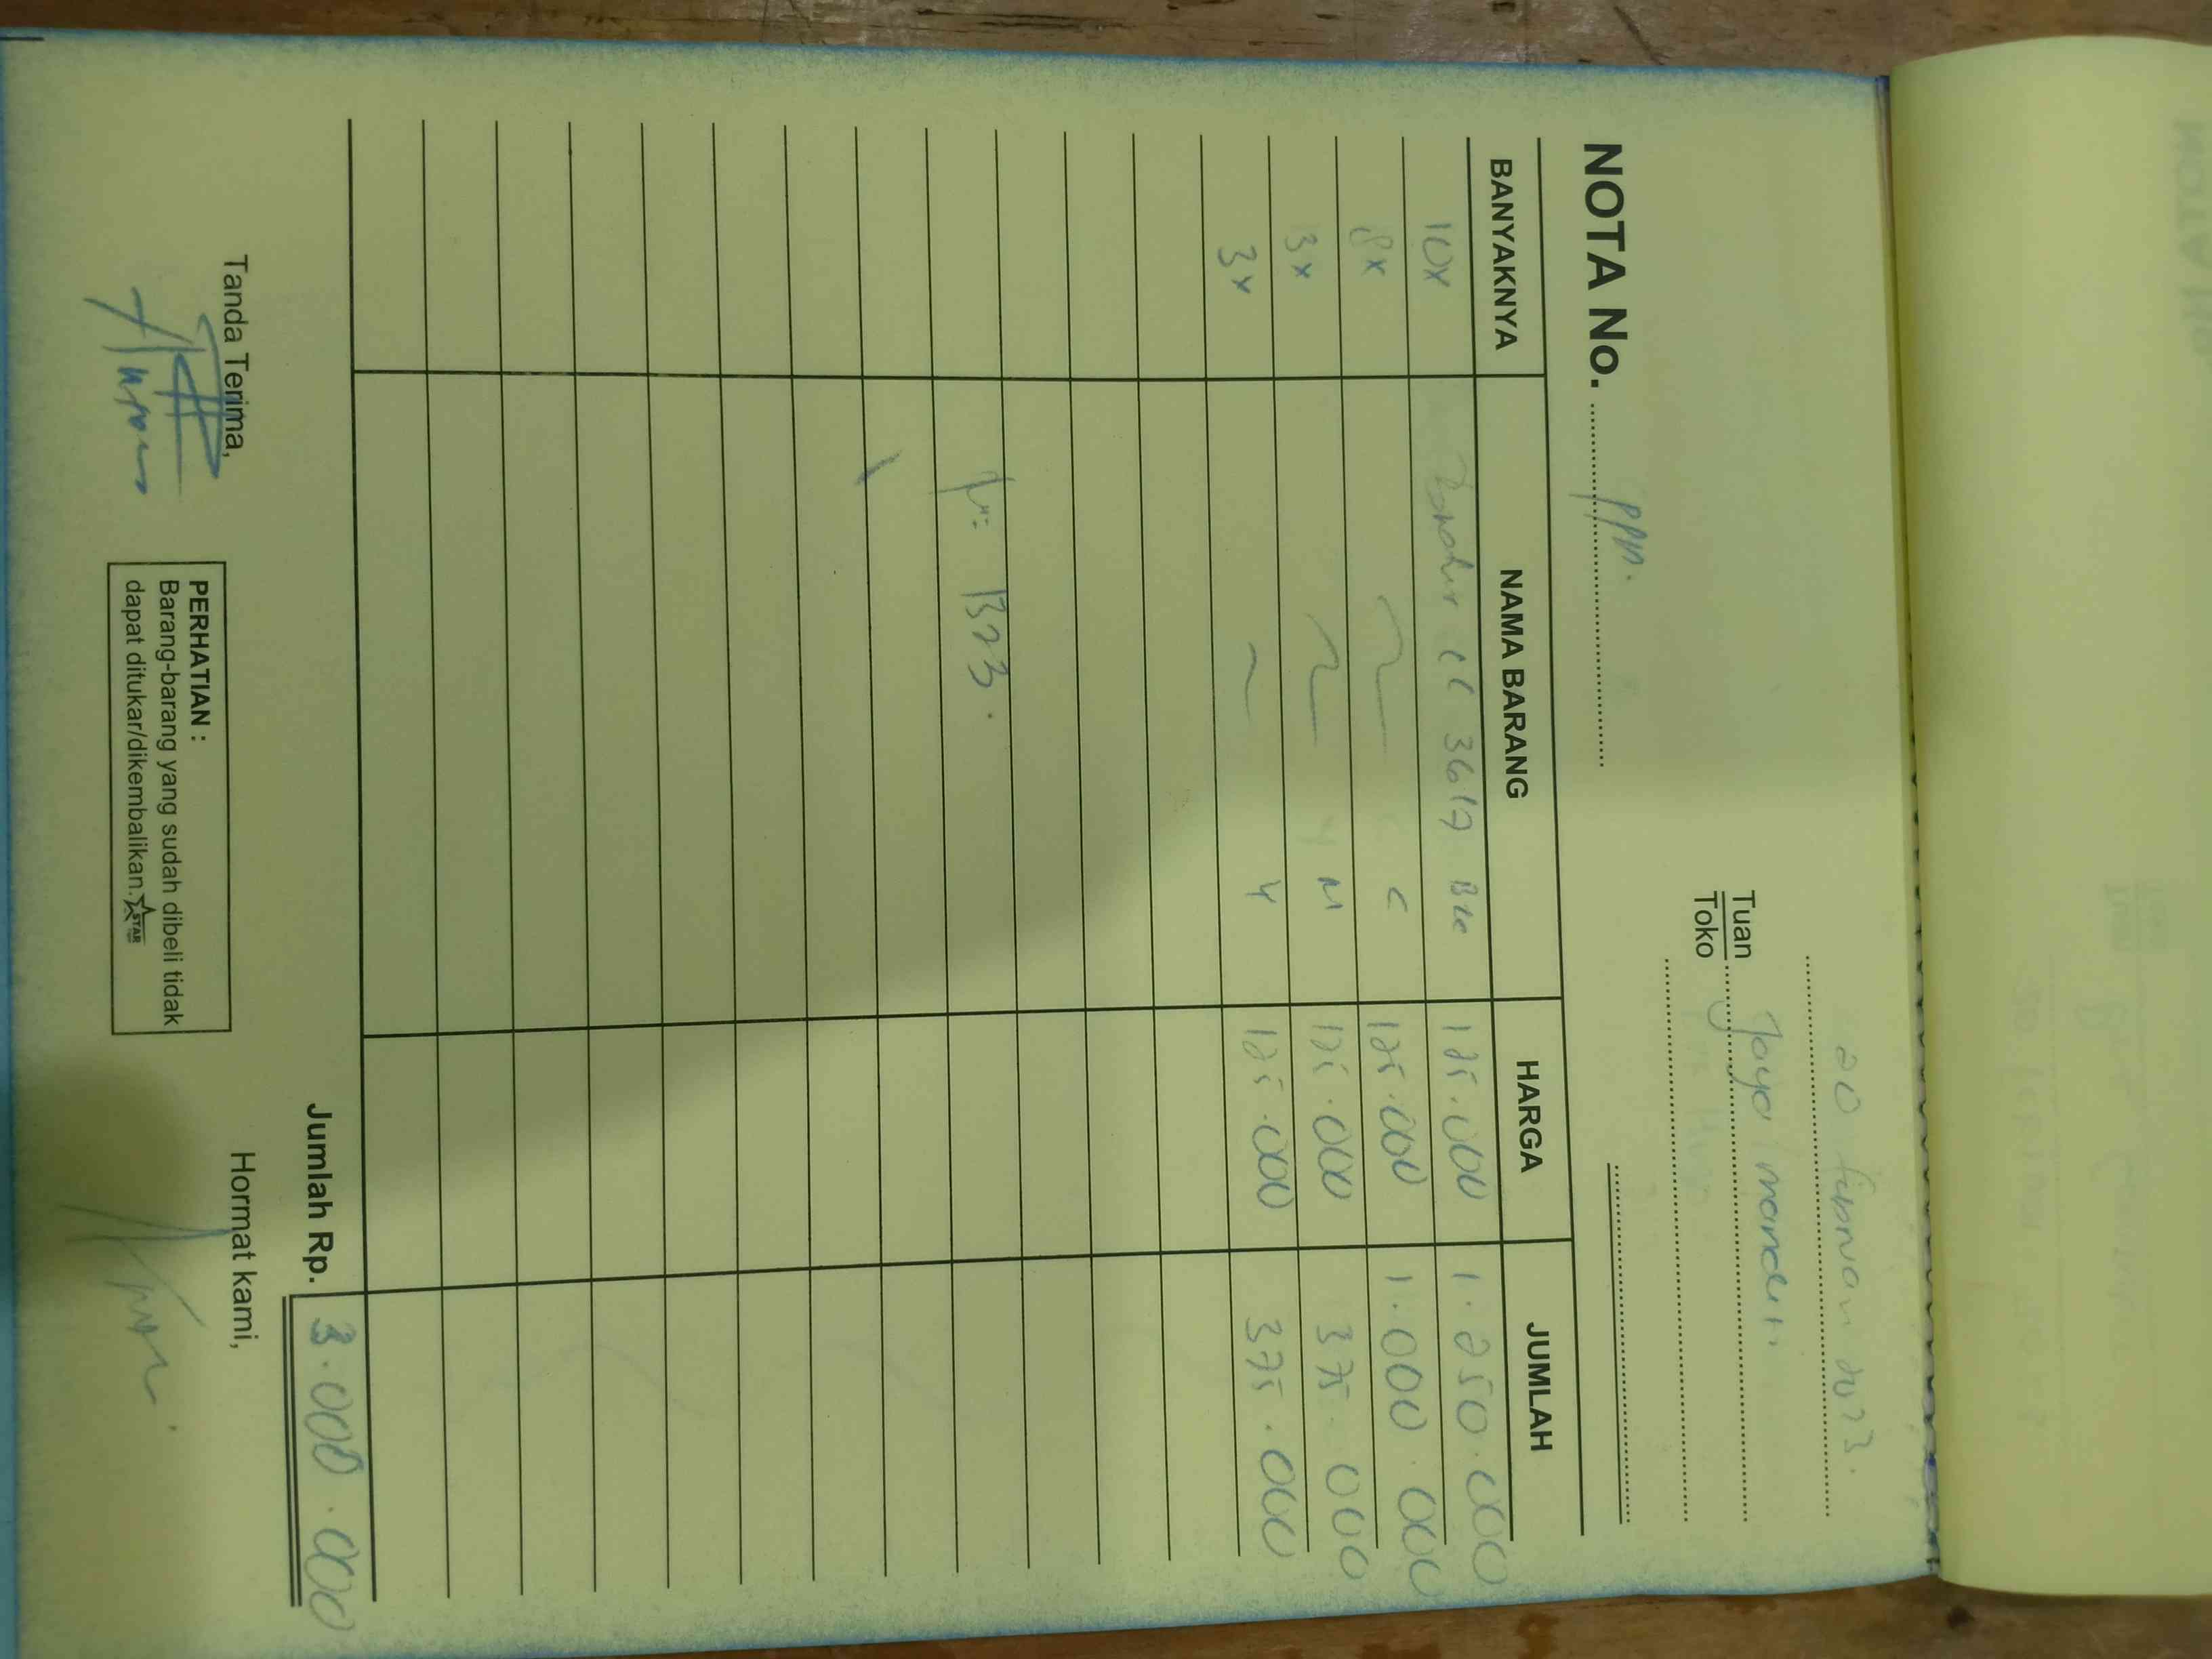 20 Februari 2023.
Tuan
Toko
Jaya Mandiri
NOTA No. PPN.
BANYAKNYA NAMA BARANG HARGA JUMLAH
10x 3617 125.000 1.250.000
8x C 125.000 1.000.000
3x M 125.000 375.000
3x Y 125.000 375.000
Jumlah Rp. 3.000.000
Tanda Terima,
Hormat kami,
PERHATIAN :
Barang-barang yang sudah dibeli tidak
dapat ditukar/dikembalikan.
STAR